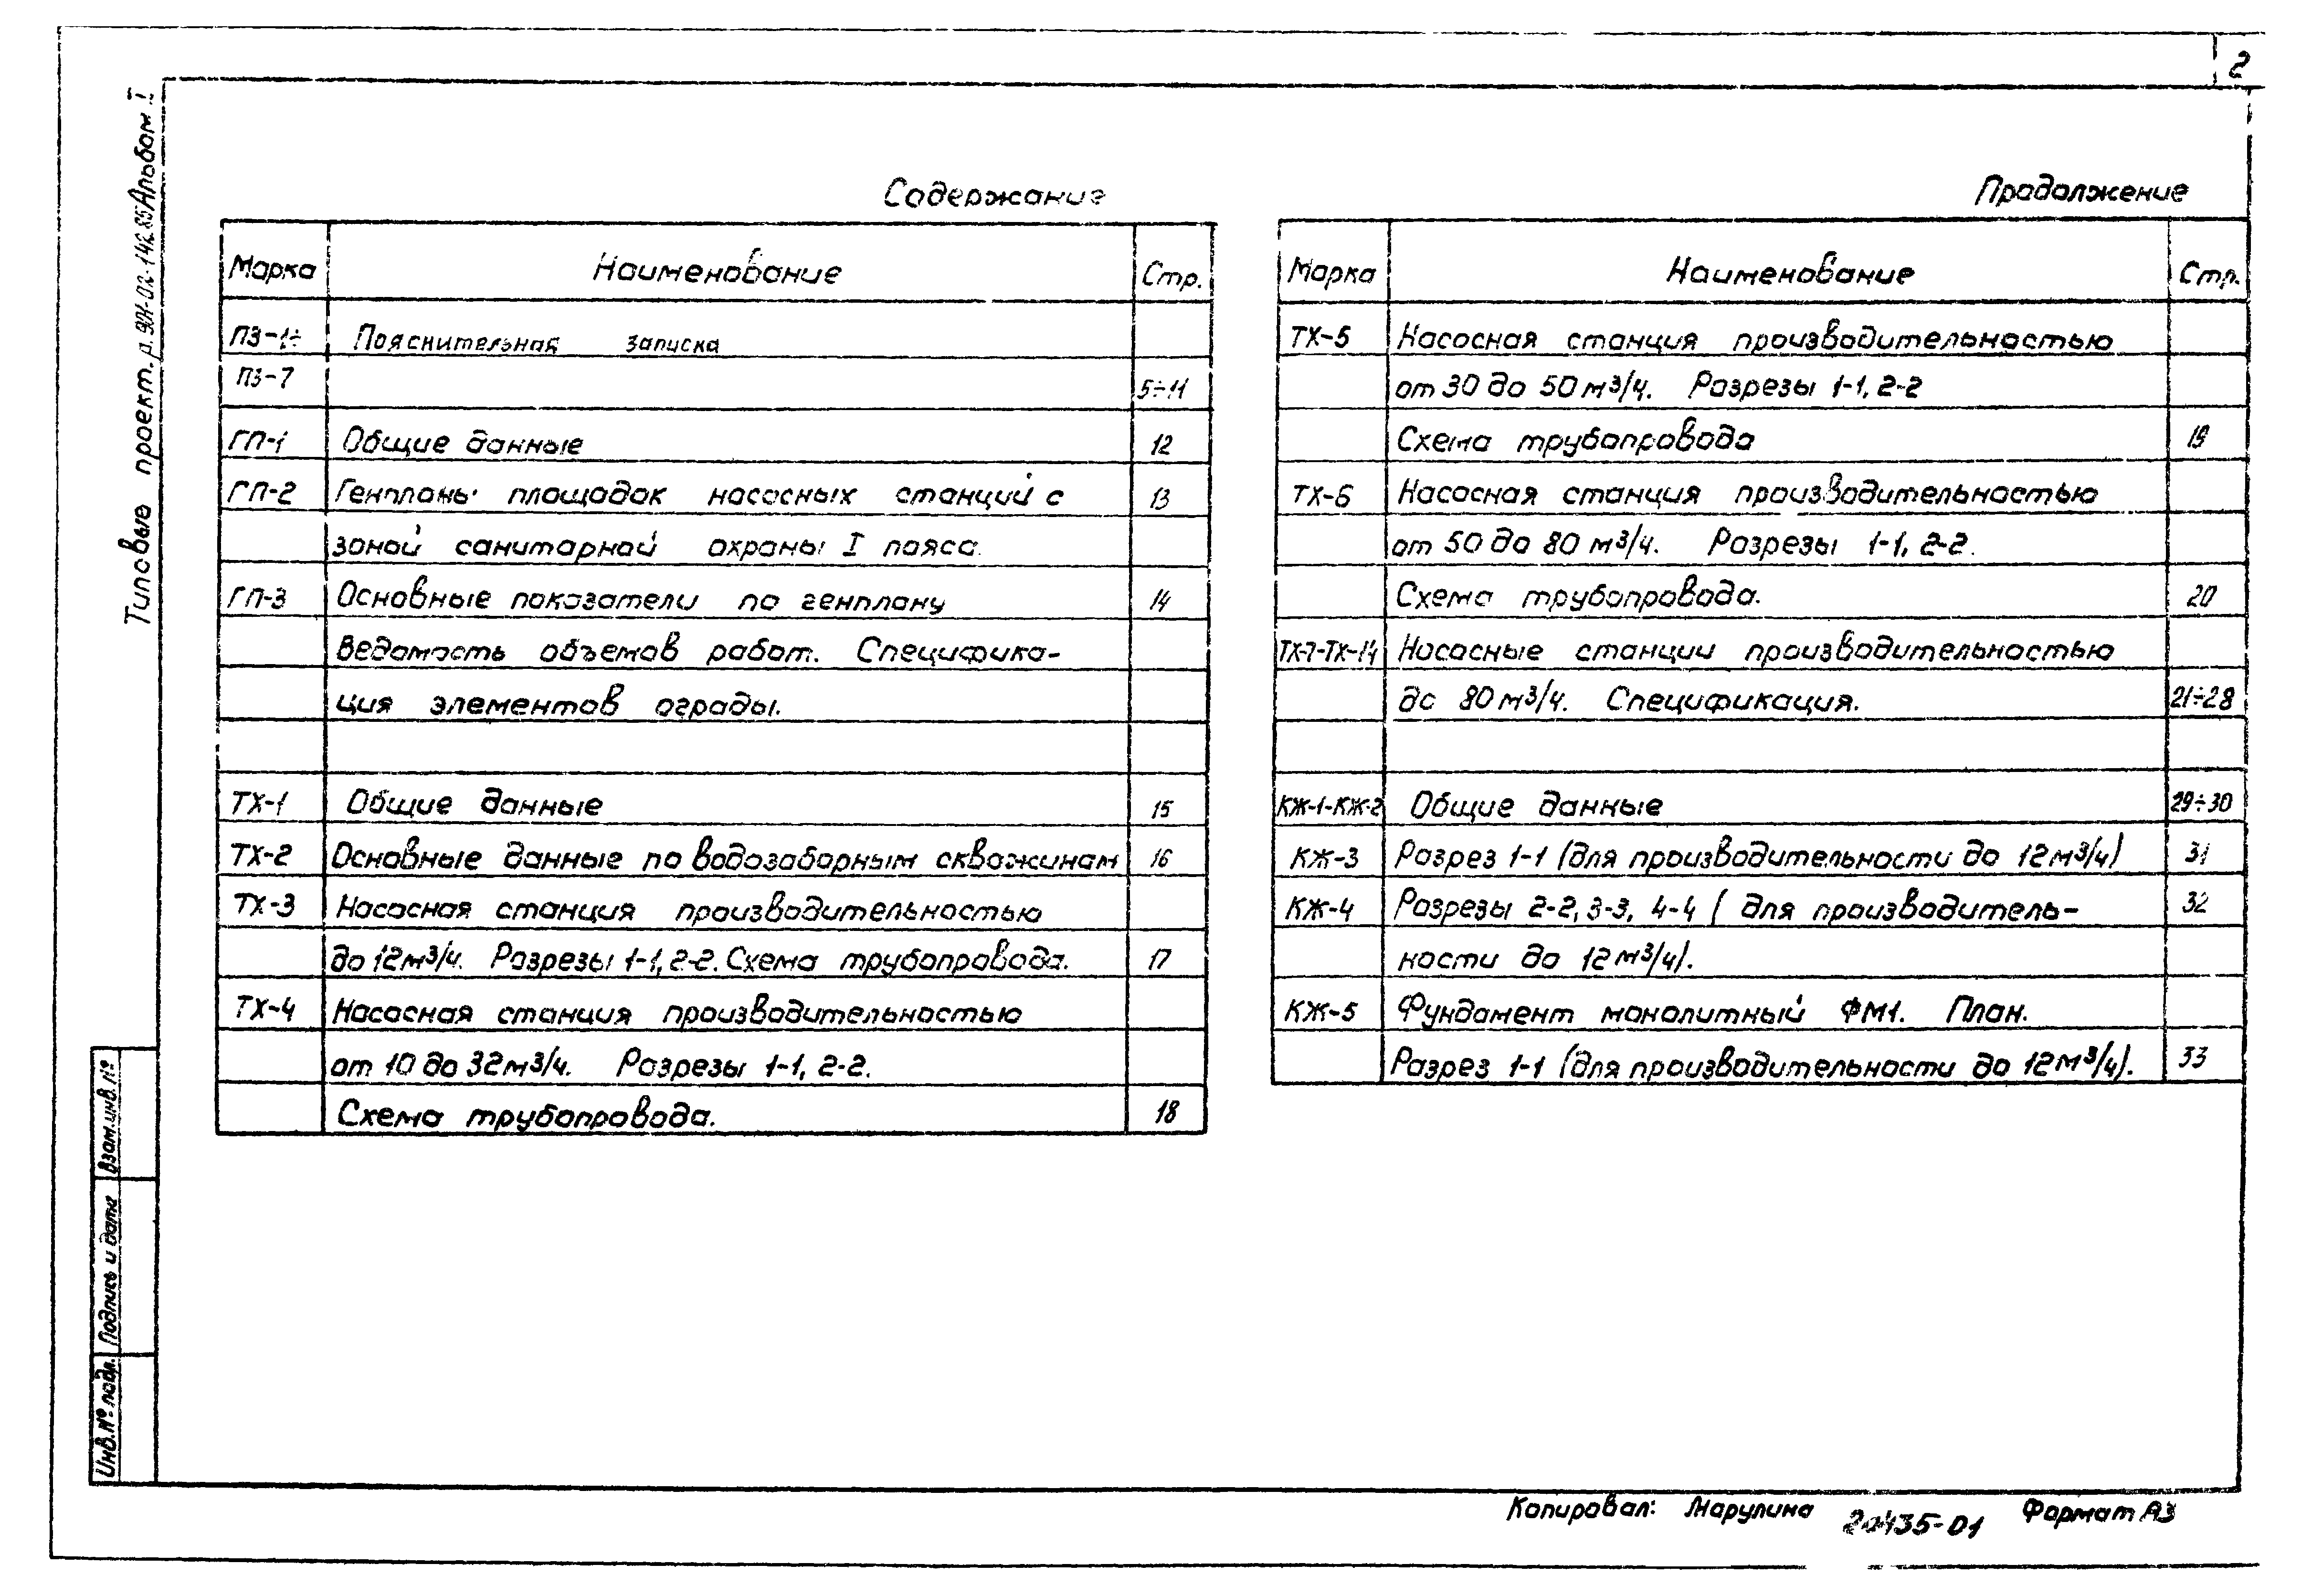 2
Типовые проект. р. 901-02-142.85 Альбом I
Содержание
Марка Наименование Стр.
ПЗ-1÷ Пояснительная записка
ПЗ-7 5÷11
ГП-1 Общие данные 12
ГП-2 Генпланы площадок насосных станций с 13
зоной санитарной охраны I пояса.
ГП-3 Основные показатели по генплану 14
Ведомость объемов работ. Специфика-
ция элементов ограды.
ТХ-1 Общие данные 15
ТХ-2 Основные данные по водозаборным скважинам 16
ТХ-3 Насосная станция производительностью
до 12м³/ч. Разрезы 1-1, 2-2. Схема трубопровода. 17
ТХ-4 Насосная станция производительностью
от 10 до 32м³/ч. Разрезы 1-1, 2-2.
Схема трубопровода. 18
Продолжение
Марка Наименование Стр.
ТХ-5 Насосная станция производительностью
от 30 до 50м³/ч. Разрезы 1-1, 2-2
Схема трубопровода 19
ТХ-6 Насосная станция производительностью
от 50 до 80 м³/ч. Разрезы 1-1, 2-2.
Схема трубопровода. 20
ТХ-7-ТХ-14 Насосные станции производительностью
до 80м³/ч. Спецификация. 21÷28
КЖ-1-КЖ-2 Общие данные 29÷30
КЖ-3 Разрез 1-1 (для производительности до 12м³/ч) 31
КЖ-4 Разрезы 2-2, 3-3, 4-4 ( для производитель- 32
ности до 12м³/ч).
КЖ-5 Фундамент монолитный ФМ1. План.
Разрез 1-1 (для производительности до 12м³/ч). 33
Взам.инв.№
Подпись и дата
Инв.№ подл.
Копировал: Марулина 20435-01 Формат А3